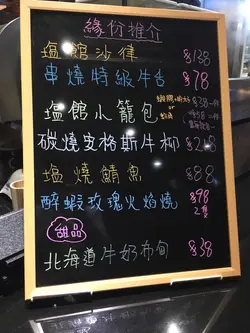 緣份推介
塩館沙律 $138
串燒特級牛舌 $78
塩館小籠包 $38一件
or
炭燒安格斯牛柳
塩燒鯖魚 $88
醉蝦玫瑰火焰燒 $98
2隻
甜品
北海道牛奶布甸 $38